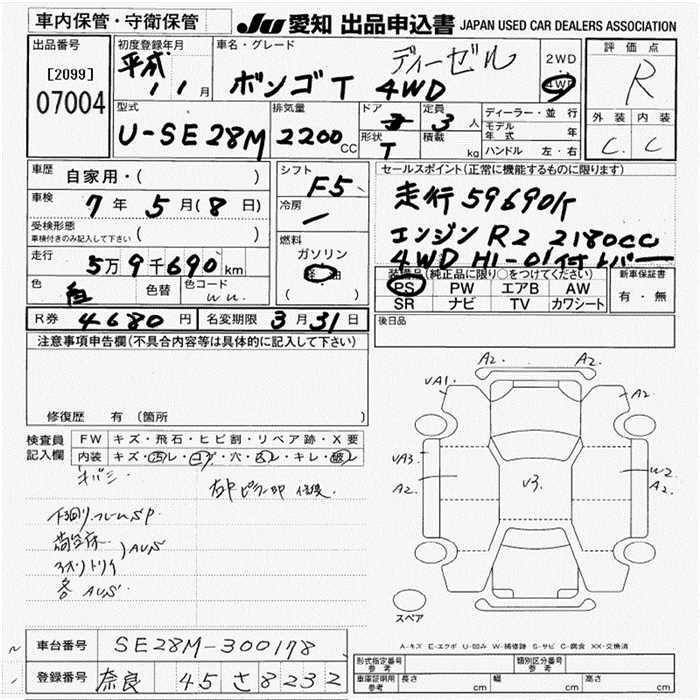 車内保管・守衛保管 JU 愛知 出品申込書 JAPAN USED CAR DEALERS ASSOCIATION
出品番号
[2099]
07004
初度登録年月
平成
11 月
車名・グレード
ディーゼル
ボンゴT 4WD
2WD
4WD
評価点
R
外装 内装
C. C
型式
U-SE28M
排気量
2200 CC
ドア
3
形状
T
定員
3 人
積載
kg
ディーラー・並行
モデル年式 年
ハンドル 左・右
車歴 自家用・( )
車検 7年 5月(8日)
受検形態
車検付きのみ記入して下さい ( )
走行
5万9千690km
色 白 色替 色コード
シフト
F5
冷房
燃料
ガソリン
軽油
( )
セールスポイント(正常に機能するものに限ります)
走行59690K
エンジン R2 2180cc
4WD HI-LO付レバー
装備品(純正品に限り○をつけてください)
PS PW エアB AW
SR ナビ TV カワシート
新車保証書
有・無
後日品
R券 4680円 名変期限 3月31日
注意事項申告欄(不具合内容等は具体的に記入して下さい)
修復歴 有 〔箇所 〕
検査員
記入欄
FW キズ・飛石・ヒビ割・リペア跡・X要
内装 キズ・凹レ・コゲ・穴・凹レ・キレ・破レ
下回り.フレームSP
荷台床
AUS
各AUS
A2. A2.
UA1. A2
UA3.
A2.
U3.
W2
A2.
スペア
A-キズ E-エクボ U-凹み W-補修跡 S-サビ C-腐食 XX-交換済
車台番号 SE28M-300178
登録番号 奈良 45 さ 8232
形式指定番号
参考
類別区分番号
参考
車庫証明用
参考
長さ cm 幅 cm 高さ cm